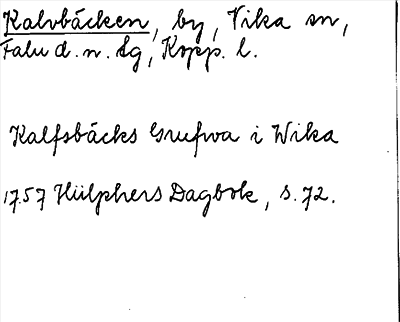 Kalvbäcken, by, Vika sn,
Falu d. n. dg, Kopp. l.
Kalfsbäcks Grufwa i Wika
1757 Hülphers Dagbok, s. 72.